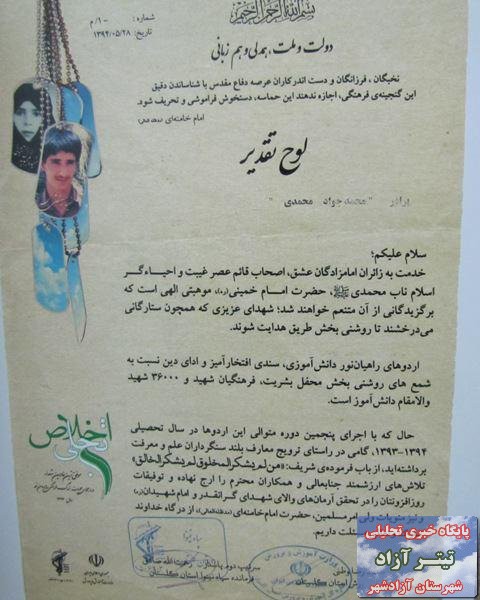 بسم الله الرحمن الرحیم
شماره : ١٠٠/م
تاریخ: ١٣٩۴/٠۵/٢٨
دولت و ملت، همدلی و هم زبانی
نخبگان، فرزانگان و دست اندرکاران عرصه دفاع مقدس با شناساندن دقیق
این گنجینه‌ی فرهنگی، اجازه ندهند این حماسه، دستخوش فراموشی و تحریف شود.
امام خامنه‌ای
لوح تقدیر
برادر " محمد جواد محمدی "
سلام علیکم؛
خدمت به زائران امامزادگان عشق، اصحاب قائم عصر غیبت و احیاءگر
اسلام ناب محمدی حضرت امام خمینی(ره)، موهبتی الهی است که
برگزیدگانی از آن متنعم خواهند شد؛ شهدای عزیزی که همچون ستارگانی
می‌درخشند تا روشنی بخش طریق هدایت شوند.
اردوهای راهیان‌نور دانش‌آموزی، سندی افتخارآمیز و ادای دین نسبت به
شمع های روشنی بخش محفل بشریت، فرهنگیان شهید و ۳۶۰۰۰ شهید
والامقام دانش‌آموز است.
حال که با اجرای پنجمین دوره متوالی این اردوها در سال تحصیلی
۱۳۹۴-۱۳۹۳، گامی در راستای ترویج معارف بلند سنگرداران علم و معرفت
برداشته‌اید، از باب فرموده‌ی شریف: «من لم یشکر المخلوق لم یشکر الخالق»
تلاش‌های ارزشمند جنابعالی و همکاران محترم را ارج نهاده و توفیقات
روزافزونتان را در تحقق آرمان‌های والای شهدای گرانقدر و امام شهیدان(ره)
و نیز منویات ولی امر مسلمین، حضرت امام خامنه‌ای از درگاه خداوند
مسئلت داریم.
اخلاص
تجلی
سرتیپ دوم پاسدار
فرمانده سپاه نینوا استان گلستان
آموزش و پرورش
استان گلستان
پایگاه خبری تحلیلی
تیتر آزاد
شهرستان آزادشهر